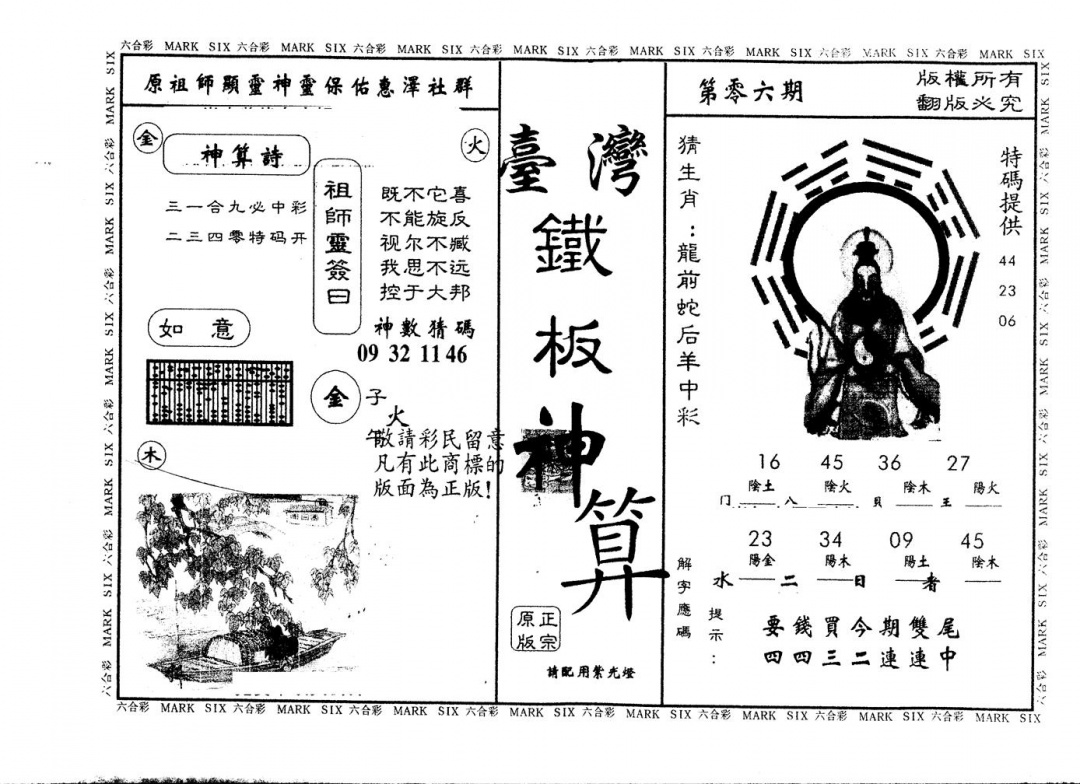 六合彩 MARK SIX 六合彩 MARK SIX 六合彩 MARK SIX 六合彩 MARK SIX 六合彩 MARK SIX 六合彩 MARK SIX 六合彩 MARK SIX 六合彩 MARK SIX
原祖師顯靈神靈保佑惠澤社群
金
火
神算詩
三一合九必中彩
二三四零特码开
祖師靈簽曰
既不它喜
不能旋反
视尔不臧
我思不远
控于大邦
神數猜碼
09 32 11 46
如意
金
子
火
午
敬請彩民留意
凡有此商標的
版面為正版!
木
臺灣
鐵
板
神
算
正宗
原版
請配用紫光燈
第零六期
版權所有
翻版必究
猜生肖:龍前蛇后羊中彩
特碼提供
44
23
06
16 45 36 27
陰土 陰火 陰木 陽火
门 八 貝 王
23 34 09 45
陽金 陽木 陽土 陰木
水 二 日 者
解字應碼
提示:
要錢買今期雙尾
四四三二連連中
六合彩 MARK SIX 六合彩 MARK SIX 六合彩 MARK SIX 六合彩 MARK SIX 六合彩 MARK SIX 六合彩 MARK SIX 六合彩 MARK SIX 六合彩 MARK SIX